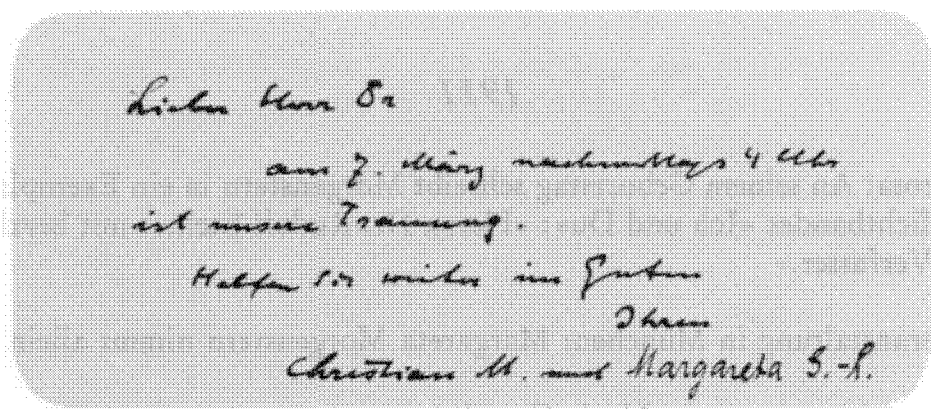 Lieber Herr Dr
am 7. März nachmittags 4 Uhr
ist unsere Trauung.
Helfen Sie weiter im Guten
Ihren
Christian M. und Margareta S.-L.